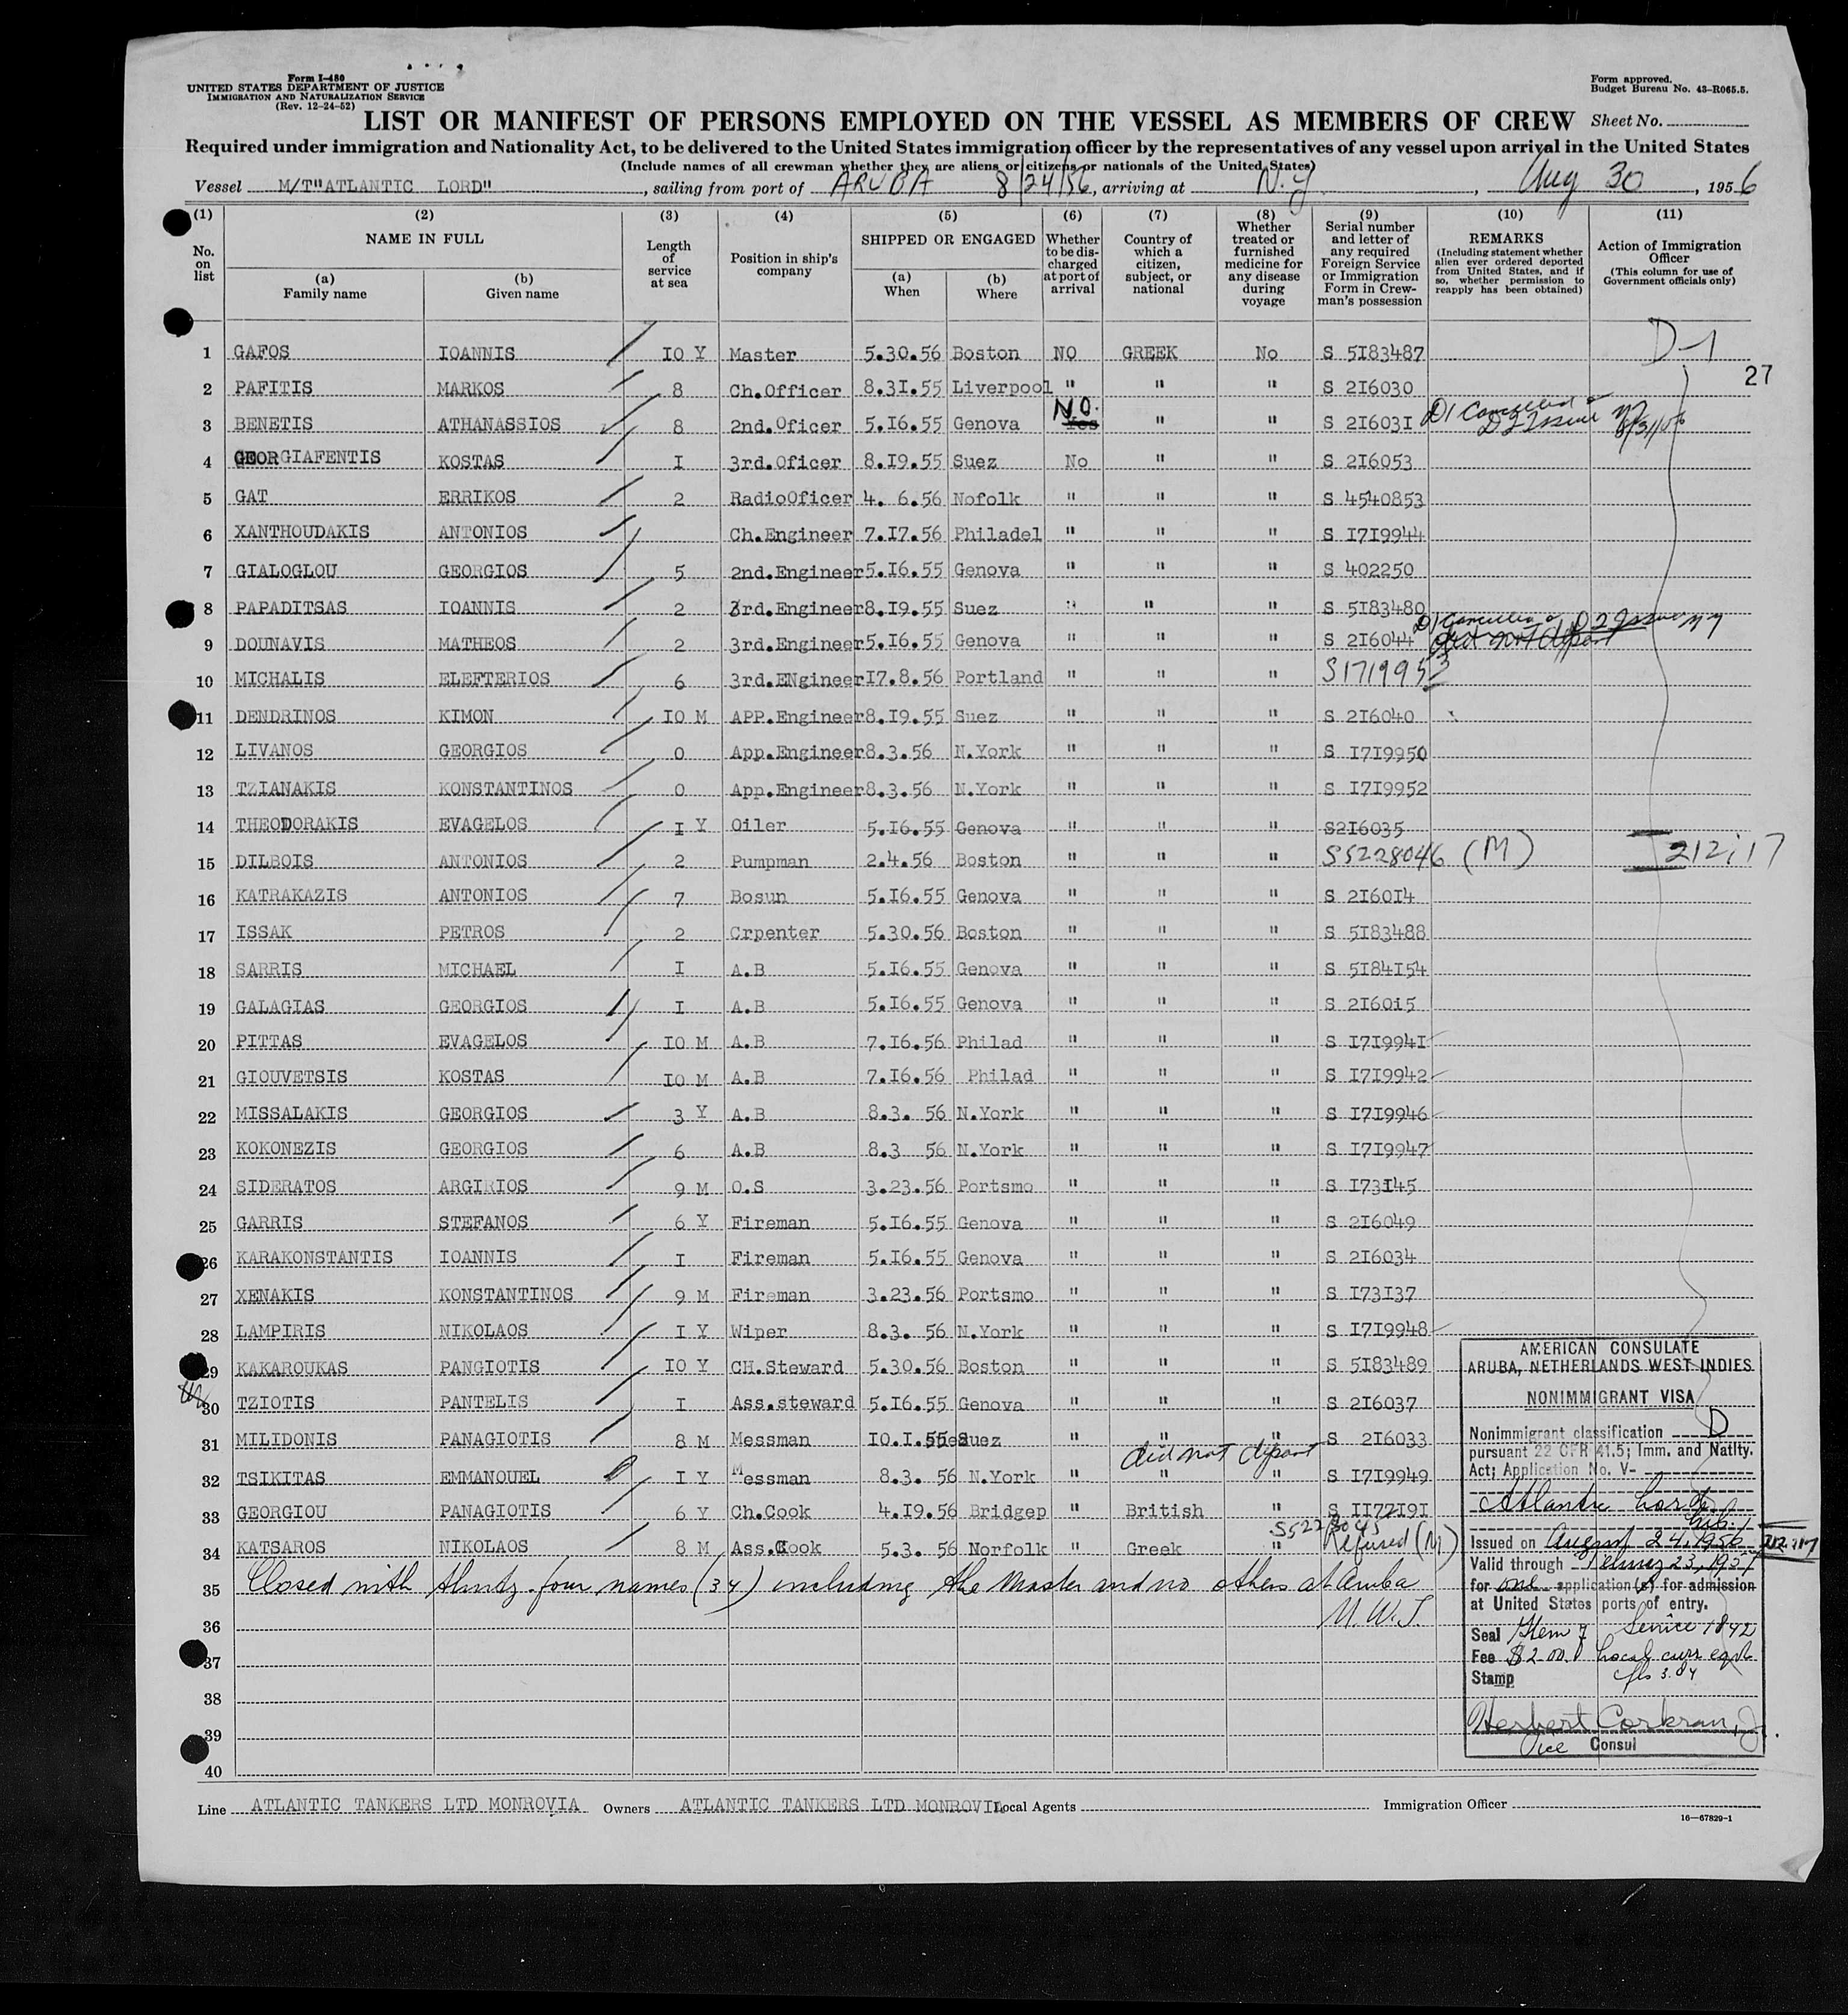 Form I-480
UNITED STATES DEPARTMENT OF JUSTICE
IMMIGRATION AND NATURALIZATION SERVICE
(Rev. 12-24-52)
Form approved.
Budget Bureau No. 43-R065.5.
LIST OR MANIFEST OF PERSONS EMPLOYED ON THE VESSEL AS MEMBERS OF CREW Sheet No.
Required under immigration and Nationality Act, to be delivered to the United States immigration officer by the representatives of any vessel upon arrival in the United States
(Include names of all crewman whether they are aliens or citizens or nationals of the United States)
Vessel M/T"ATLANTIC LORD" , sailing from port of ARUBA 8/24/56, arriving at N.Y. , Aug 30 , 1956
(1) (2) (3) (4) (5) (6) (7) (8) (9) (10) (11)
No. on list
NAME IN FULL
(a) Family name
(b) Given name
Length of service at sea
Position in ship's company
SHIPPED OR ENGAGED
(a) When
(b) Where
Whether to be discharged at port of arrival
Country of which a citizen, subject, or national
Whether treated or furnished medicine for any disease during voyage
Serial number and letter of any required Foreign Service or Immigration Form in Crewman's possession
REMARKS
(Including statement whether alien ever ordered deported from United States, and if so, whether permission to reapply has been obtained)
Action of Immigration Officer
(This column for use of Government officials only)
1 GAFOS IOANNIS IO Y Master 5.30.56 Boston NO GREEK No S 5I83487 D-1
27
2 PAFITIS MARKOS 8 Ch.Officer 8.3I.55 Liverpool " " " S 2I6030
3 BENETIS ATHANASSIOS 8 2nd.Oficer 5.I6.55 Genova Yes NO. " " S 2I603I D1 Cancelled & D2 Issue 8/31/56
4 GEORGIAFENTIS KOSTAS I 3rd.Oficer 8.I9.55 Suez No " " S 2I6053
5 GAT ERRIKOS 2 RadioOficer 4. 6.56 Nofolk " " " S 4540853
6 XANTHOUDAKIS ANTONIOS Ch.Engineer 7.I7.56 Philadel " " " S I7I9944
7 GIALOGLOU GEORGIOS 5 2nd.Engineer 5.I6.55 Genova " " " S 402250
8 PAPADITSAS IOANNIS 2 3rd.Engineer 8.I9.55 Suez " " " S 5I83480
9 DOUNAVIS MATHEOS 2 3rd.Engineer 5.I6.55 Genova " " " S 2I6044 D1 Cancelled & D2 Issue did not depart
10 MICHALIS ELEFTERIOS 6 3rd.ENgineer I7.8.56 Portland " " " S1719953
11 DENDRINOS KIMON IO M APP.Engineer 8.I9.55 Suez " " " S 2I6040
12 LIVANOS GEORGIOS 0 App.Engineer 8.3.56 N.York " " " S I7I9950
13 TZIANAKIS KONSTANTINOS 0 App.Engineer 8.3.56 N.York " " " S I7I9952
14 THEODORAKIS EVAGELOS I Y Oiler 5.I6.55 Genova " " " S2I6035
15 DILBOIS ANTONIOS 2 Pumpman 2.4.56 Boston " " " S5228046 (M) 212:17
16 KATRAKAZIS ANTONIOS 7 Bosun 5.I6.55 Genova " " " S 2I60I4
17 ISSAK PETROS 2 Crpenter 5.30.56 Boston " " " S 5I83488
18 SARRIS MICHAEL I A.B 5.I6.55 Genova " " " S 5I84I54
19 GALAGIAS GEORGIOS I A.B 5.I6.55 Genova " " " S 2I60i5
20 PITTAS EVAGELOS IO M A.B 7.I6.56 Philad " " " S I7I994I
21 GIOUVETSIS KOSTAS IO M A.B 7.I6.56 Philad " " " S I7I9942
22 MISSALAKIS GEORGIOS 3 Y A.B 8.3. 56 N.York " " " S I7I9946
23 KOKONEZIS GEORGIOS 6 A.B 8.3 56 N.York " " " S I7I9947
24 SIDERATOS ARGIRIOS 9 M O.S 3.23.56 Portsmo " " " S I73I45
25 GARRIS STEFANOS 6 Y Fireman 5.I6.55 Genova " " " S 2I6049
26 KARAKONSTANTIS IOANNIS I Fireman 5.I6.55 Genova " " " S 2I6034
27 XENAKIS KONSTANTINOS 9 M Fireman 3.23.56 Portsmo " " " S I73I37
28 LAMPIRIS NIKOLAOS I Y Wiper 8.3. 56 N.York " " " S I7I9948
29 KAKAROUKAS PANGIOTIS IO Y CH.Steward 5.30.56 Boston " " " S 5I83489
30 TZIOTIS PANTELIS I Ass.steward 5.I6.55 Genova " " " S 2I6037
31 MILIDONIS PANAGIOTIS 8 M Messman IO.I.55 Suez " " " S 2I6033
did not depart
32 TSIKITAS EMMANOUEL I Y Messman 8.3. 56 N.York " " " S I7I9949
33 GEORGIOU PANAGIOTIS 6 Y Ch.Cook 4.I9.56 Bridgep " British " S II72I9I
S5228045
34 KATSAROS NIKOLAOS 8 M Ass.Cook 5.3. 56 Norfolk " Greek " Refused (M) 212:17
35 Closed with thirty-four names (34) including the Master and no others at Aruba
36
37
38
39
40
AMERICAN CONSULATE
ARUBA, NETHERLANDS WEST INDIES
NONIMMIGRANT VISA
Nonimmigrant classification D
pursuant 22 CFR 41.5; Imm. and Natlty.
Act; Application No. V-
Atlantic Lord
Issued on August 24, 1956
Valid through 23, 1957
for one application(s) for admission
at United States ports of entry.
Seal Item 7 Service 1842
Fee $2.00 Local curr eqvl.
Stamp fls 3.84
Herbert Corkran, Jr.
Vice Consul
Line ATLANTIC TANKERS LTD MONROVIA Owners ATLANTIC TANKERS LTD MONROVIA Local Agents Immigration Officer
16-67829-1